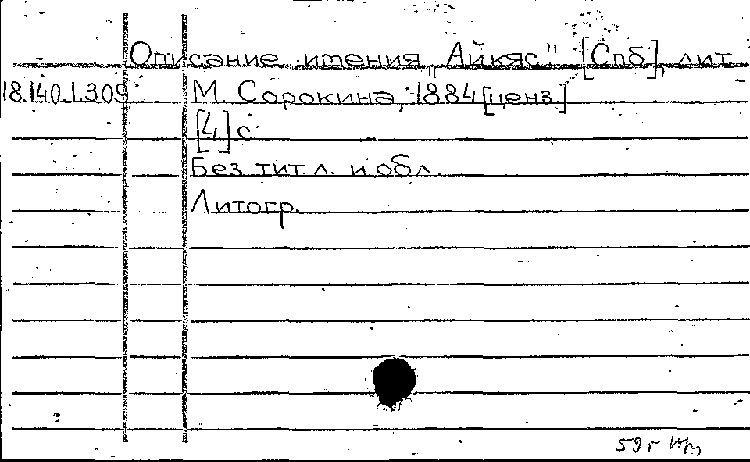 Описание имения „Айкяс" [Спб], лит
18.140.1.309 М. Сорокина, 1884 [ценз]
[4] с
Без тит. л. и обл.
Литогр.
59г